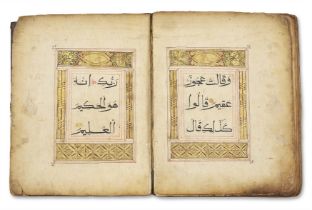 وقالت عجوز
عقيم قالوا
كذلك قال
ربك انه
هو الحكيم
العليم